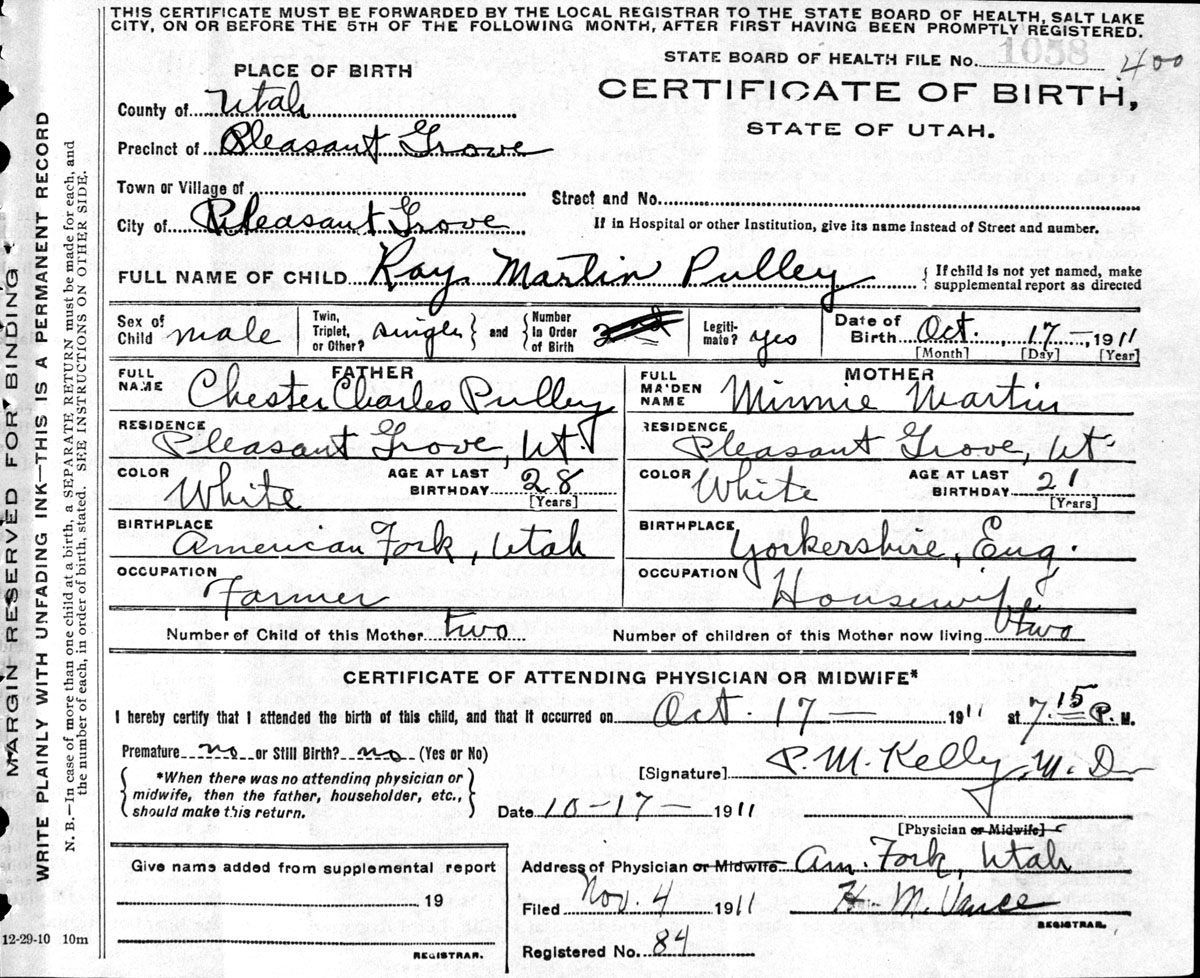 THIS CERTIFICATE MUST BE FORWARDED BY THE LOCAL REGISTRAR TO THE STATE BOARD OF HEALTH, SALT LAKE
CITY, ON OR BEFORE THE 5TH OF THE FOLLOWING MONTH, AFTER FIRST HAVING BEEN PROMPTLY REGISTERED.
STATE BOARD OF HEALTH FILE No. 1058 400
PLACE OF BIRTH
CERTIFICATE OF BIRTH,
STATE OF UTAH.
County of Utah
Precinct of Pleasant Grove
Town or Village of
Street and No.
City of Pleasant Grove
If in Hospital or other Institution, give its name instead of Street and number.
FULL NAME OF CHILD Ray Martin Pulley
{ If child is not yet named, make
supplemental report as directed
Sex of
Child male
Twin,
Triplet,
or Other? single } and { Number
in Order
of Birth 2nd
Legiti-
mate? yes
Date of
Birth Oct. 17 — , 1911
[Month] [Day] [Year]
FATHER
FULL
NAME Chester Charles Pulley
MOTHER
FULL
MAIDEN
NAME Minnie Martin
RESIDENCE Pleasant Grove, Ut.
RESIDENCE Pleasant Grove, Ut.
COLOR White
AGE AT LAST
BIRTHDAY 28
[Years]
COLOR White
AGE AT LAST
BIRTHDAY 21
[Years]
BIRTHPLACE American Fork, Utah
BIRTHPLACE Yorkershire, Eng.
OCCUPATION Farmer
OCCUPATION Housewife
Number of Child of this Mother two
Number of children of this Mother now living two
CERTIFICATE OF ATTENDING PHYSICIAN OR MIDWIFE*
I hereby certify that I attended the birth of this child, and that it occurred on Oct. 17 — 1911 at 7.15 P. M.
Premature no or Still Birth? no (Yes or No)
{ *When there was no attending physician or
midwife, then the father, householder, etc.,
should make this return. }
[Signature] P. M. Kelly, M. D.
Date 10-17- 1911
[Physician or Midwife]
Give name added from supplemental report
19
REGISTRAR.
Address of Physician or Midwife Am. Fork, Utah
Filed Nov. 4 1911 M. Vance
REGISTRAR.
Registered No. 84
12-29-10 10m
MARGIN RESERVED FOR BINDING
WRITE PLAINLY WITH UNFADING INK—THIS IS A PERMANENT RECORD
N. B.—In case of more than one child at a birth, a SEPARATE RETURN must be made for each, and
the number of each, in order of birth, stated. SEE INSTRUCTIONS ON OTHER SIDE.